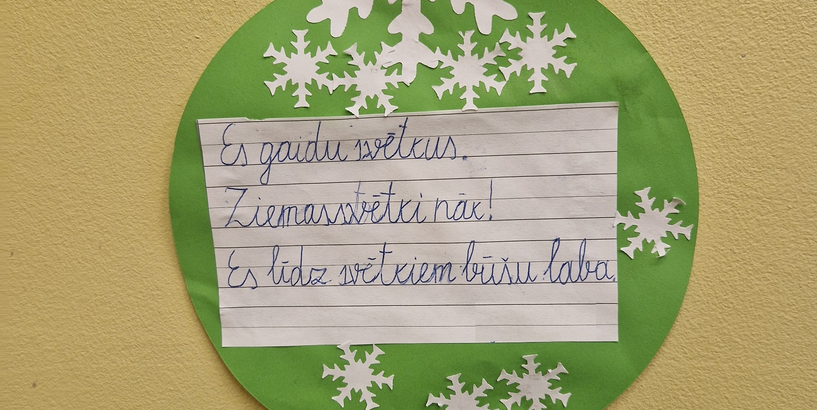 Es gaidu svētkus.
Ziemassvētki nāk!
Es līdz svētkiem būšu laba.